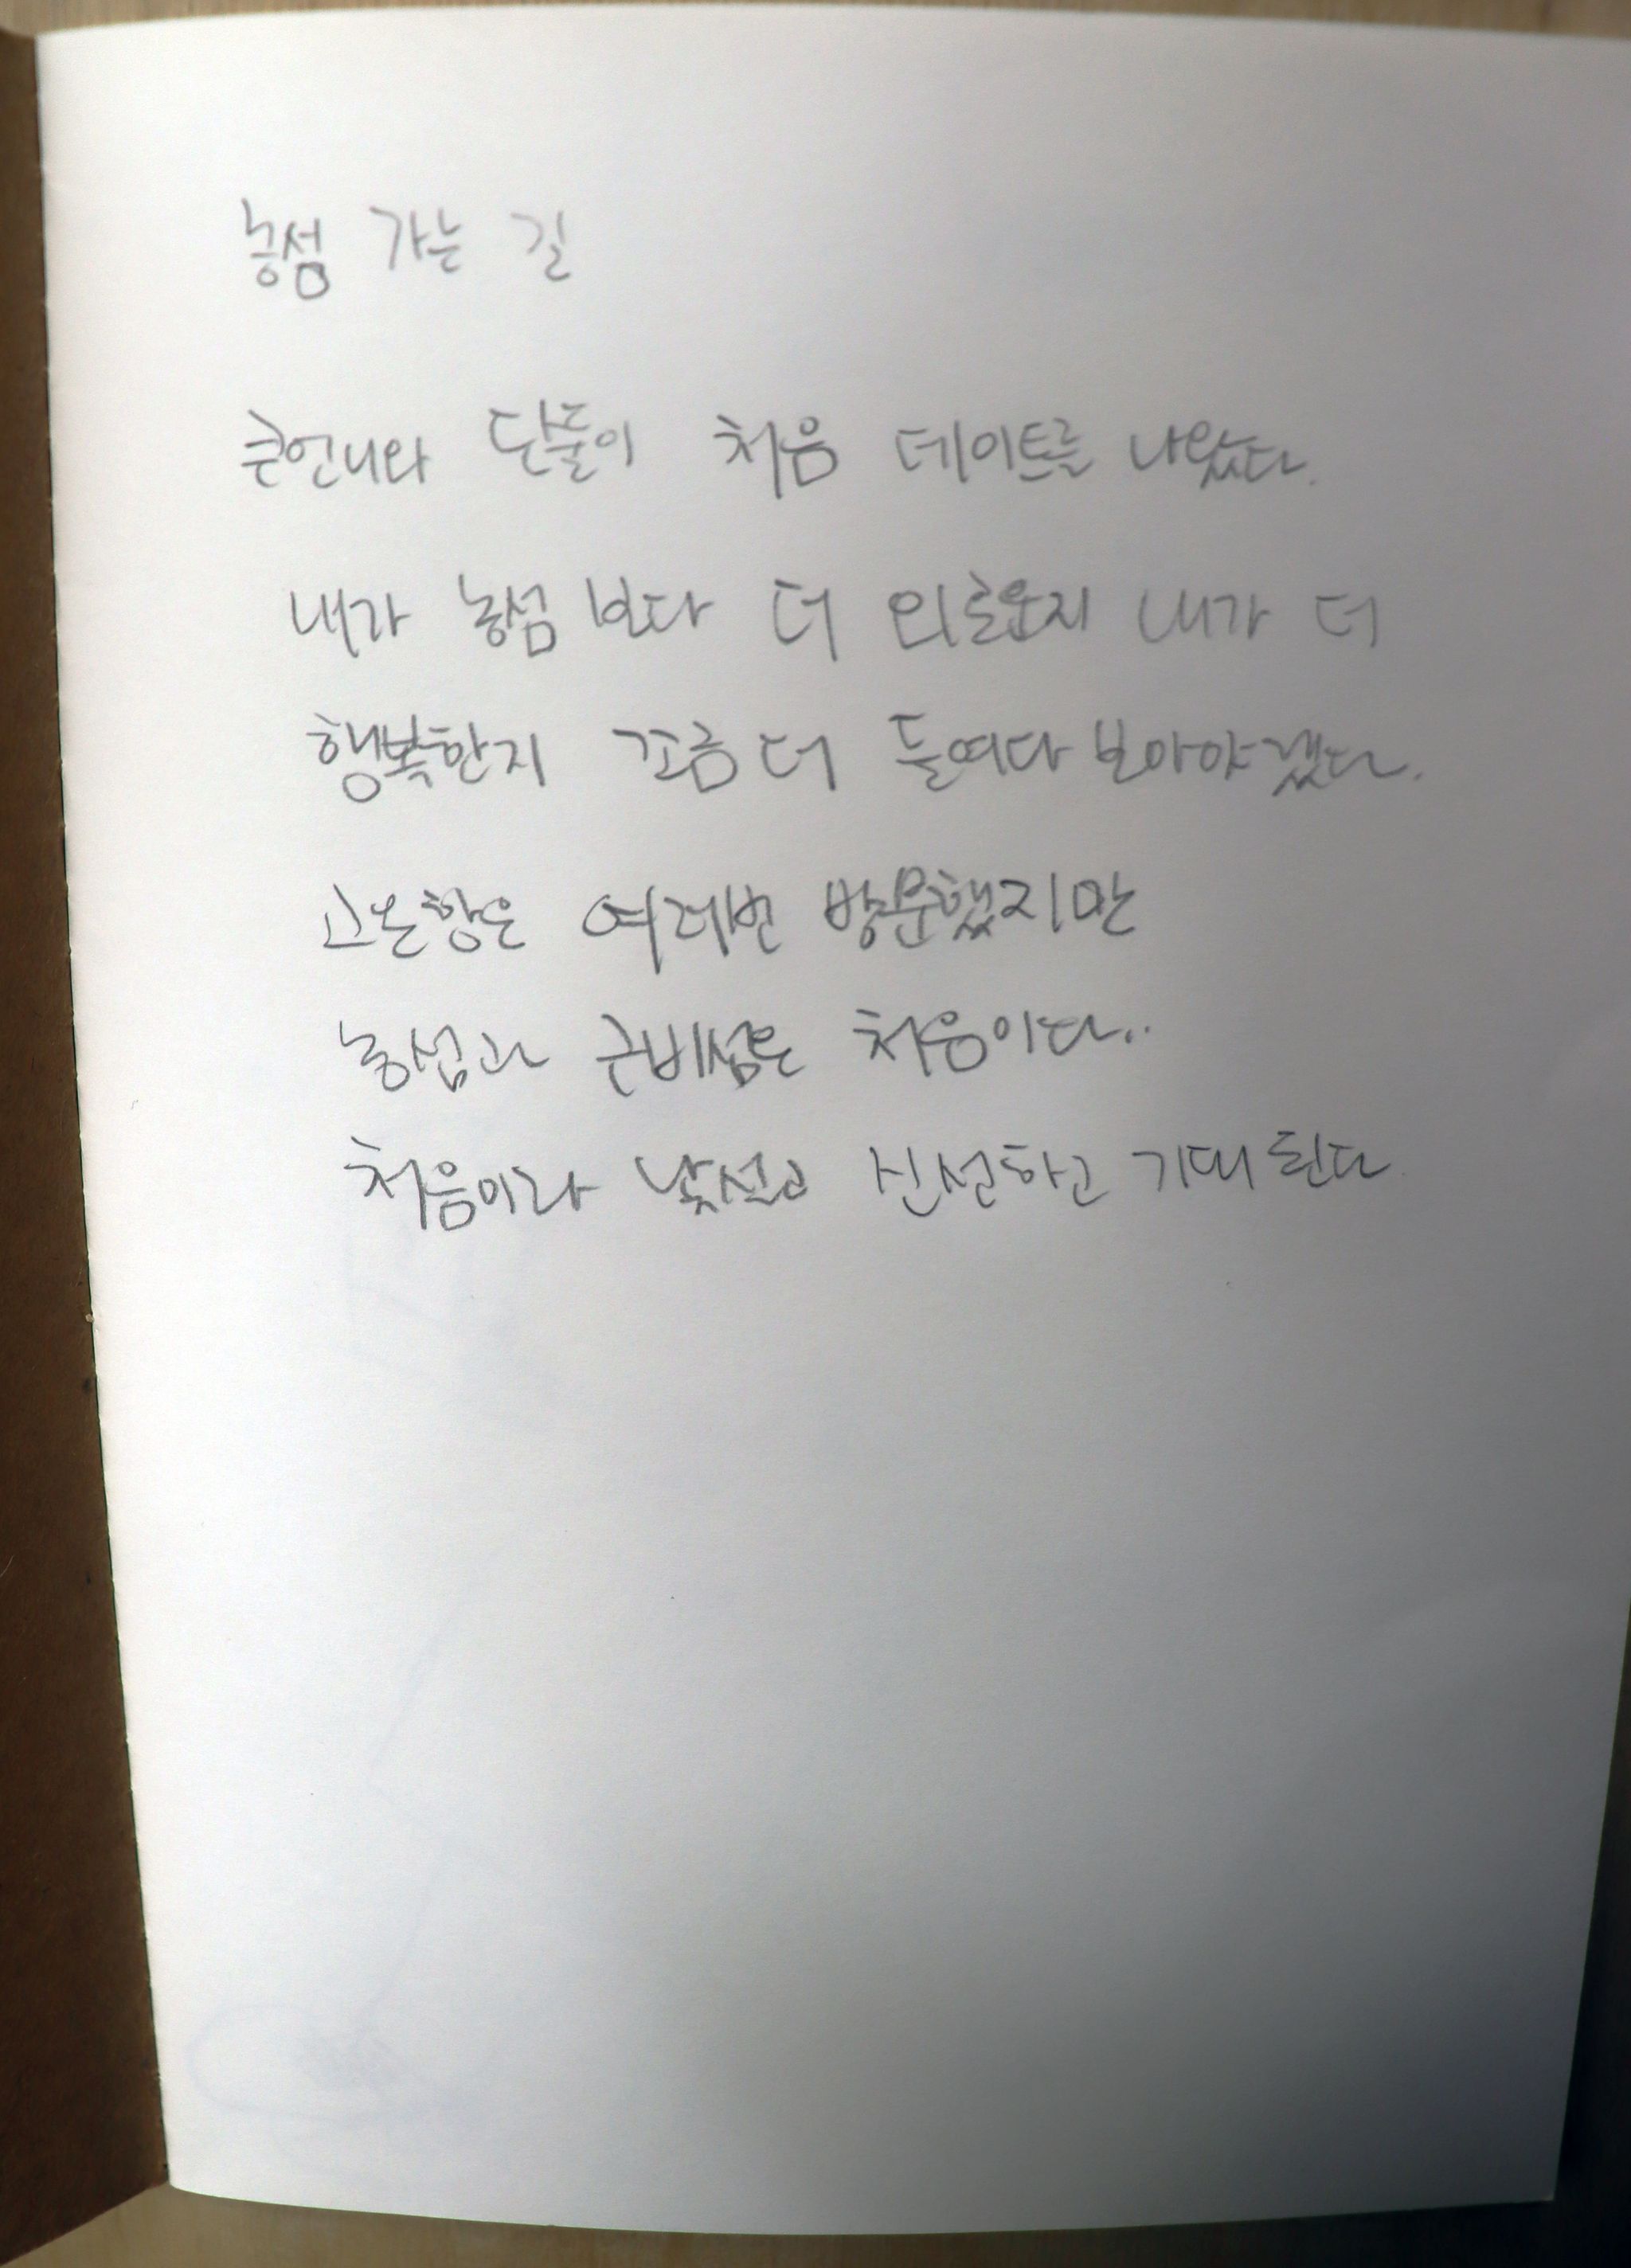 농섬 가는 길
큰언니와 단둘이 처음 데이트를 나왔다.
내가 농섬 보다 더 외로운지 내가 더
행복한지 꼬금 더 들여다 보아야겠다.
고온항은 여러번 방문했지만
농섬과 큰비섬은 처음이다..
처음이라 낯설고 신선하고 기대 된다